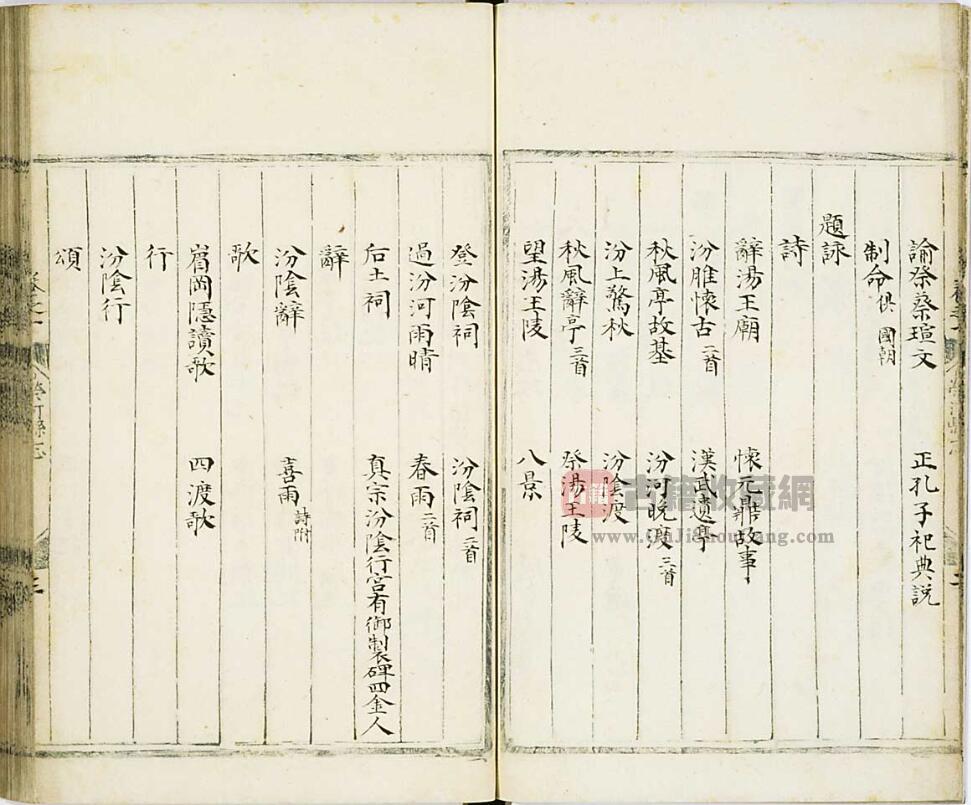 諭祭蔡瑄文 正孔子祀典説
制命 俱國朝
題詠
詩
辭湯王廟 懷元鼎故事
汾脽懷古 二首 漢武遺亭
秋風亭故基 汾河晚渡 三首
汾上驚秋 汾陰渡
秋風辭亭 三首 祭湯王陵
望湯王陵 八景
登汾陰祠 汾陰祠 二首
過汾河雨晴 春雨 二首
后土祠 真宗汾陰行宮有御製碑四金人
辭
汾陰辭 喜雨 詩附
歌
眉岡隱讀歌 四渡歌
行
汾陰行
頌
榮河縣志
古籍收藏網
www.GuJiShouCang.com